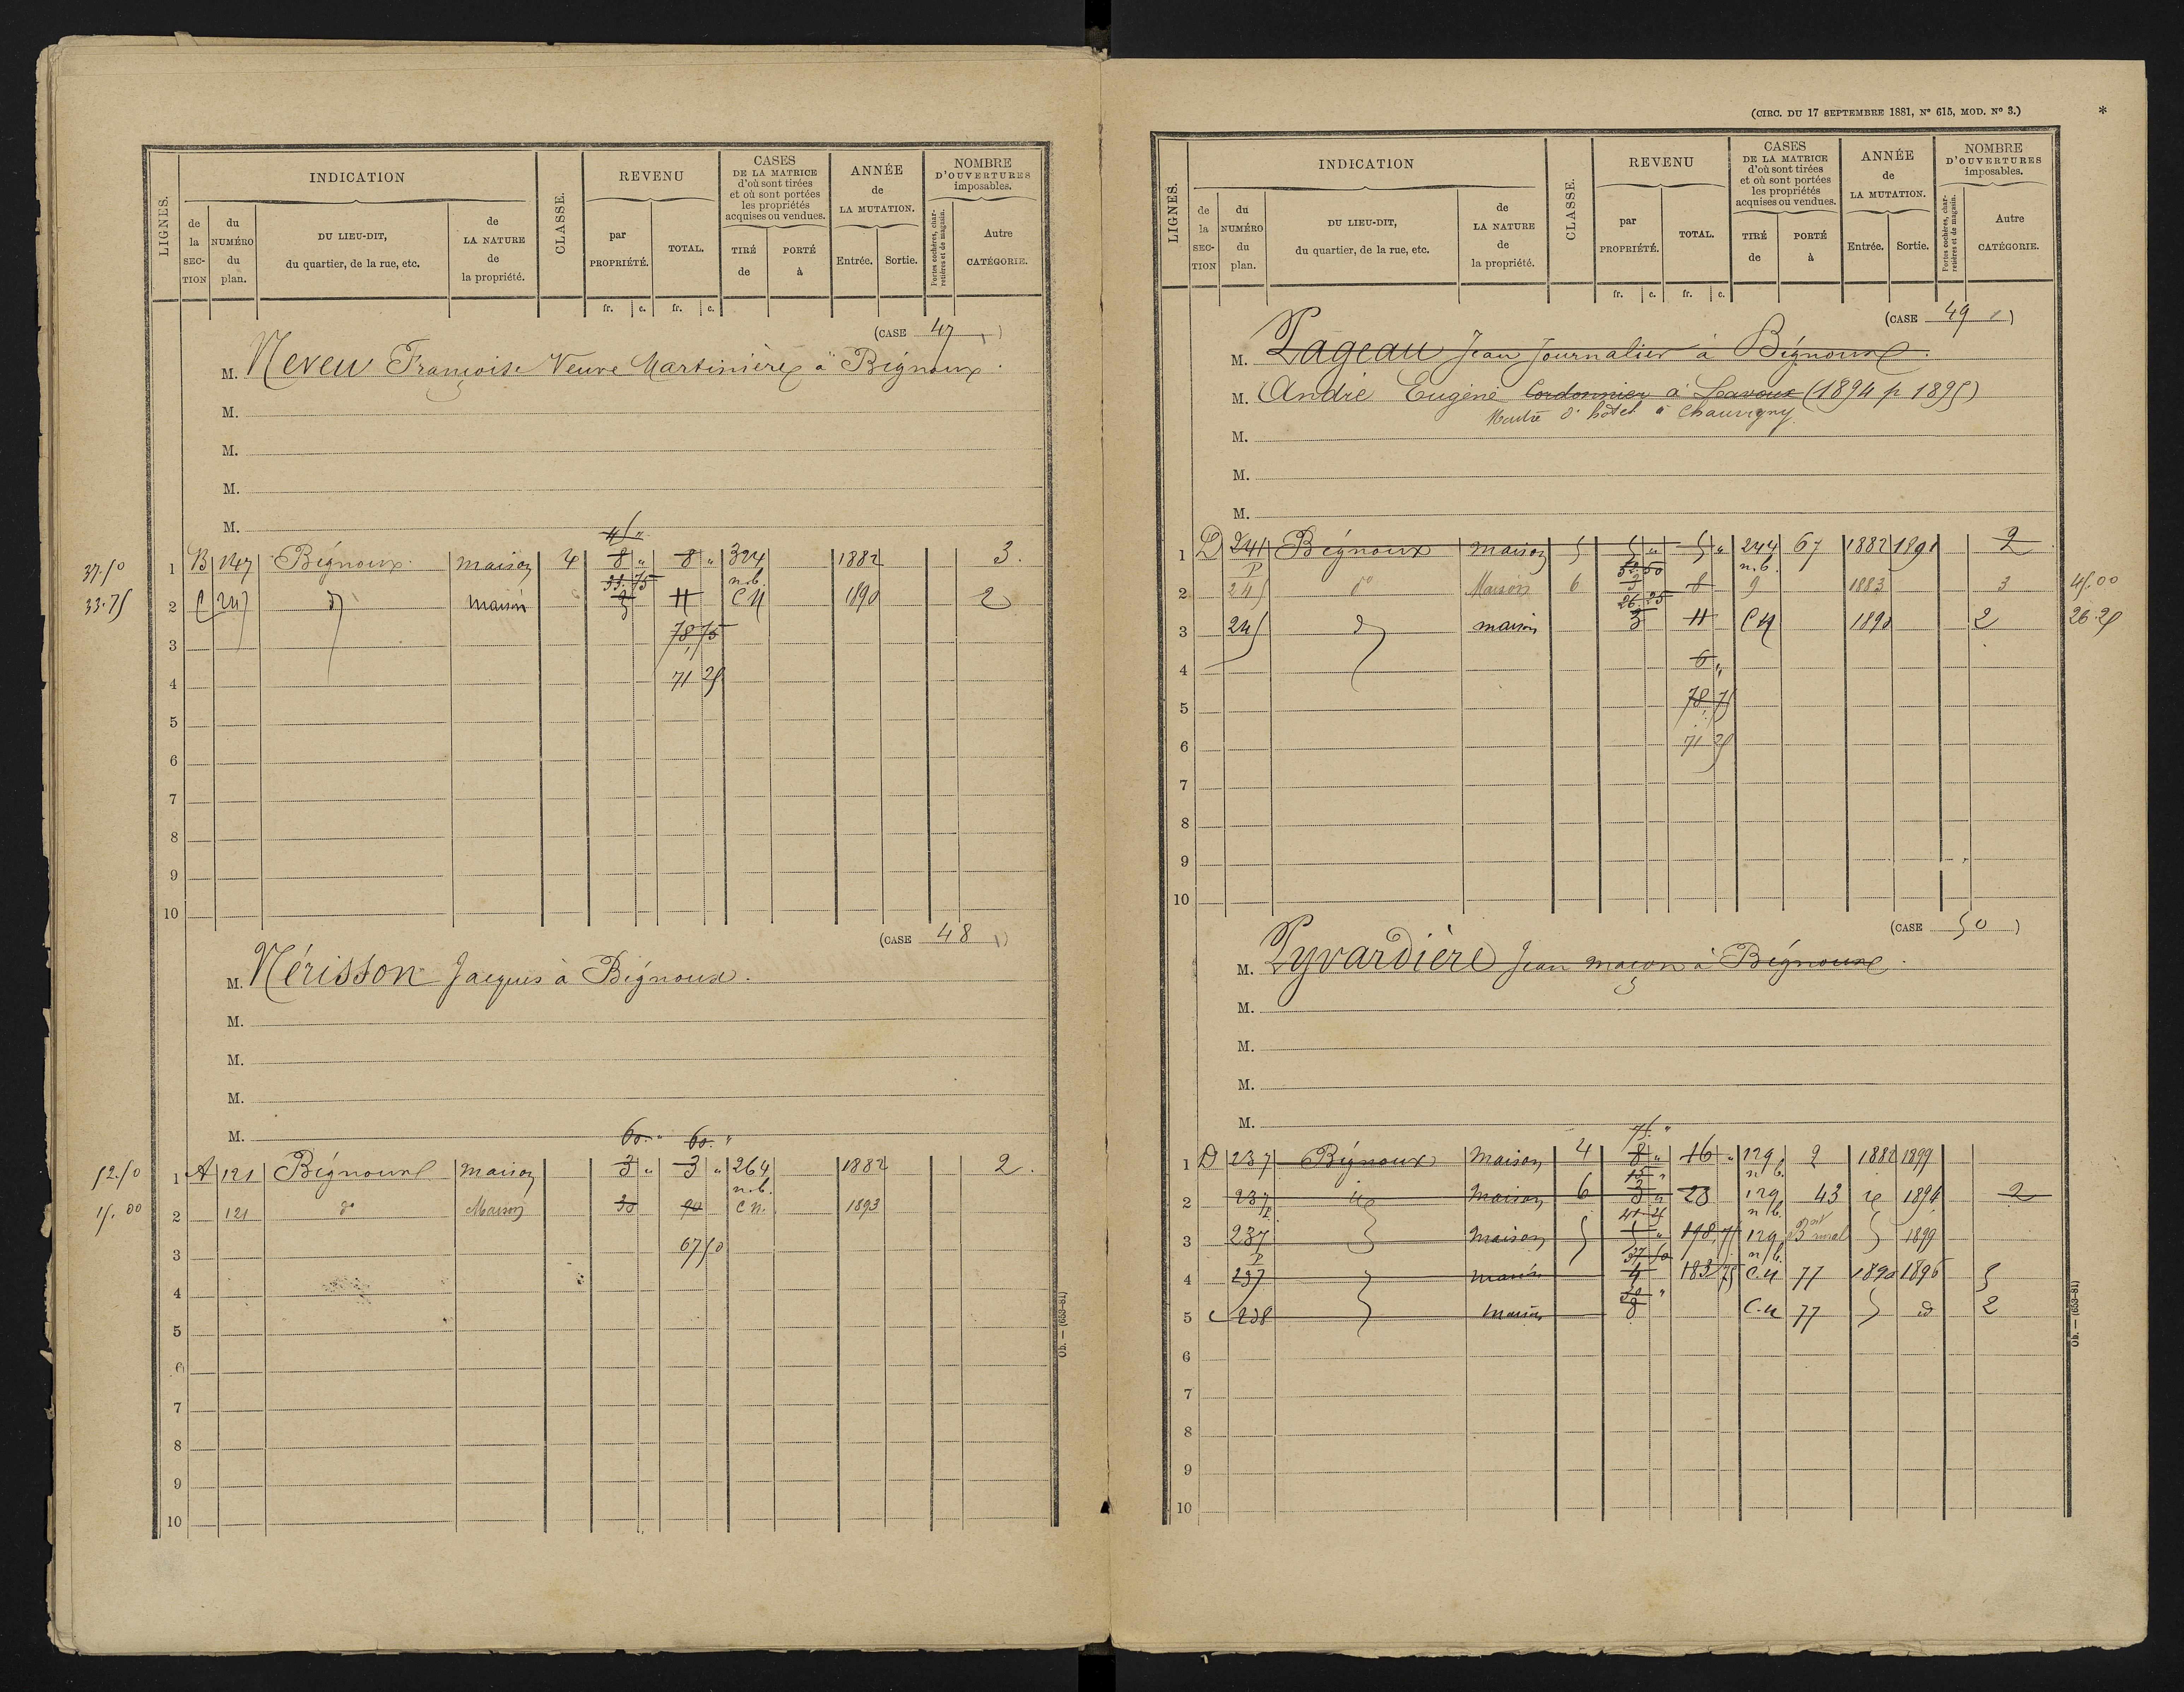 LIGNES.
INDICATION
de la SECTION
du NUMÉRO du plan.
DU LIEU-DIT, du quartier, de la rue, etc.
de LA NATURE de la propriété.
CLASSE.
REVENU
par PROPRIÉTÉ.
TOTAL.
fr. c. fr. c.
CASES DE LA MATRICE d'où sont tirées et où sont portées les propriétés acquises ou vendues.
TIRÉ de
PORTÉ à
ANNÉE de LA MUTATION.
Entrée. Sortie.
NOMBRE D'OUVERTURES imposables.
Portes cochères, charretières et de magasin.
Autre CATÉGORIE.
(CASE 47)
M. Neveu Françoise Veuve Martinière à Bignoux.
M.
M.
M.
M.
45 "
37.50 1 B 147 Bignoux. maison 4 8 " 8 " 324 1882 3.
33.75 n.b.
33.75 2 C 247 d maison 3 11 C N 1890 2
3 78 75
4 71 25
5
6
7
8
9
10
(CASE 48)
M. Nérisson Jacques à Bignoux.
M.
M.
M.
M.
60. " 60. "
52.50 1 A 121 Bignoux maison 3 " 3 " 264 1882 2.
n.b.
15.00 2 121 do Maison 30 90 C n. 1893
3 67 50
4
5
6
7
8
9
10
Ob. — (653-81)
(CIRC. DU 17 SEPTEMBRE 1881, No 615, MOD. No 3.) *
LIGNES.
INDICATION
de la SECTION
du NUMÉRO du plan.
DU LIEU-DIT, du quartier, de la rue, etc.
de LA NATURE de la propriété.
CLASSE.
REVENU
par PROPRIÉTÉ.
TOTAL.
fr. c. fr. c.
CASES DE LA MATRICE d'où sont tirées et où sont portées les propriétés acquises ou vendues.
TIRÉ de
PORTÉ à
ANNÉE de LA MUTATION.
Entrée. Sortie.
NOMBRE D'OUVERTURES imposables.
Portes cochères, charretières et de magasin.
Autre CATÉGORIE.
(CASE 49)
M. Pageau Jean Journalier à Bignoux.
M. André Eugène Cordonnier à Lavoux (1894 p 1895)
Maitre d'hôtel à Chauvigny.
M.
M.
M.
1 D 241 Bignoux maison 5 5 " 5 " 244 67 1882 1891 2
P 52.50 n.b.
2 245 do Maison 6 3 8 9 1883 3 45.00
26.25
3 245 d maison 3 11 C N 1890 2 26.25
4 6 "
5 78 75
6 71 25
7
8
9
10
(CASE 50)
M. Pyvardière Jean maçon à Bignoux.
M.
M.
M.
M.
75. "
1 D 237 Bignoux Maison 4 8 " 16 " 129 2 1882 1899
15 " n b.
2 237 P id Maison 6 3 " 28 129 43 id 1894 2
41 25 n b.
3 237 Maison 5 5 " 198 75 129 B rural 1899
P 37 50 n b.
4 237 maison 4 183 75 C.N 77 1890 1896 5
30 "
5 C 238 maison 8 C.N 77 d 2
6
7
8
9
10
Ob. — (653-81)